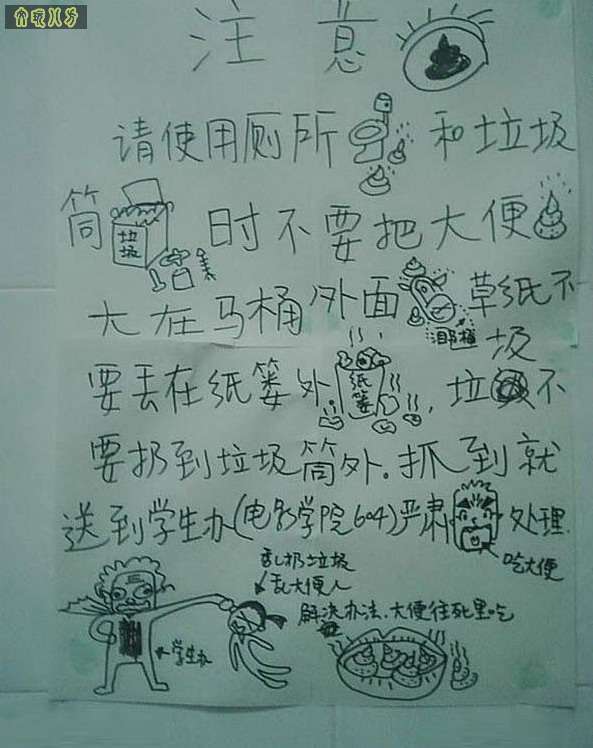 注意
请使用厕所和垃圾
筒 时不要把大便
垃圾
大在马桶外面 草纸不
马桶
要丢在纸篓外. ,垃圾不
纸篓
要扔到垃圾筒外.抓到就
送到学生办(电影学院604)严肃处理.
吃大便
乱扔垃圾
乱大便人
学生办
解决办法.大便往死里吃